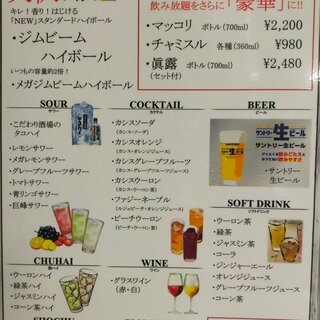 キレ！香り！はじける
「NEW」スタンダードハイボール
・ジムビーム
ハイボール
いつもの容量約2倍！
・メガジムビームハイボール
飲み放題をさらに「豪華」に!!
・マッコリ ボトル(700ml) ¥2,200
・チャミスル 各種(360ml) ¥980
・眞露 ボトル(700ml) ¥2,480
(セット付)
SOUR
サワー
・こだわり酒場の
タコハイ
・レモンサワー
・メガレモンサワー
・グレープフルーツサワー
・トマトサワー
・青リンゴサワー
・巨峰サワー
CHUHAI
酎ハイ
・ウーロンハイ
・緑茶ハイ
・ジャスミンハイ
・コーン茶ハイ
SHOCHU
COCKTAIL
カクテル
・カシスソーダ
(カシス・ソーダ)
・カシスオレンジ
(カシス・オレンジジュース)
・カシスグレープフルーツ
(カシス・グレープフルーツジュース)
・カシスウーロン
(カシス・ウーロン茶)
・ファジーネーブル
(ルジェピーチ・オレンジジュース)
・ピーチウーロン
(ピーチ・ウーロン茶)
WINE
ワイン
・グラスワイン
(赤・白)
BEER
ビール
サントリー生ビール
サントリー生ビール
・サントリー
生ビール
SOFT DRINK
ソフトドリンク
・ウーロン茶
・緑茶
・ジャスミン茶
・コーラ
・ジンジャーエール
・オレンジジュース
・グレープフルーツジュース
・コーン茶